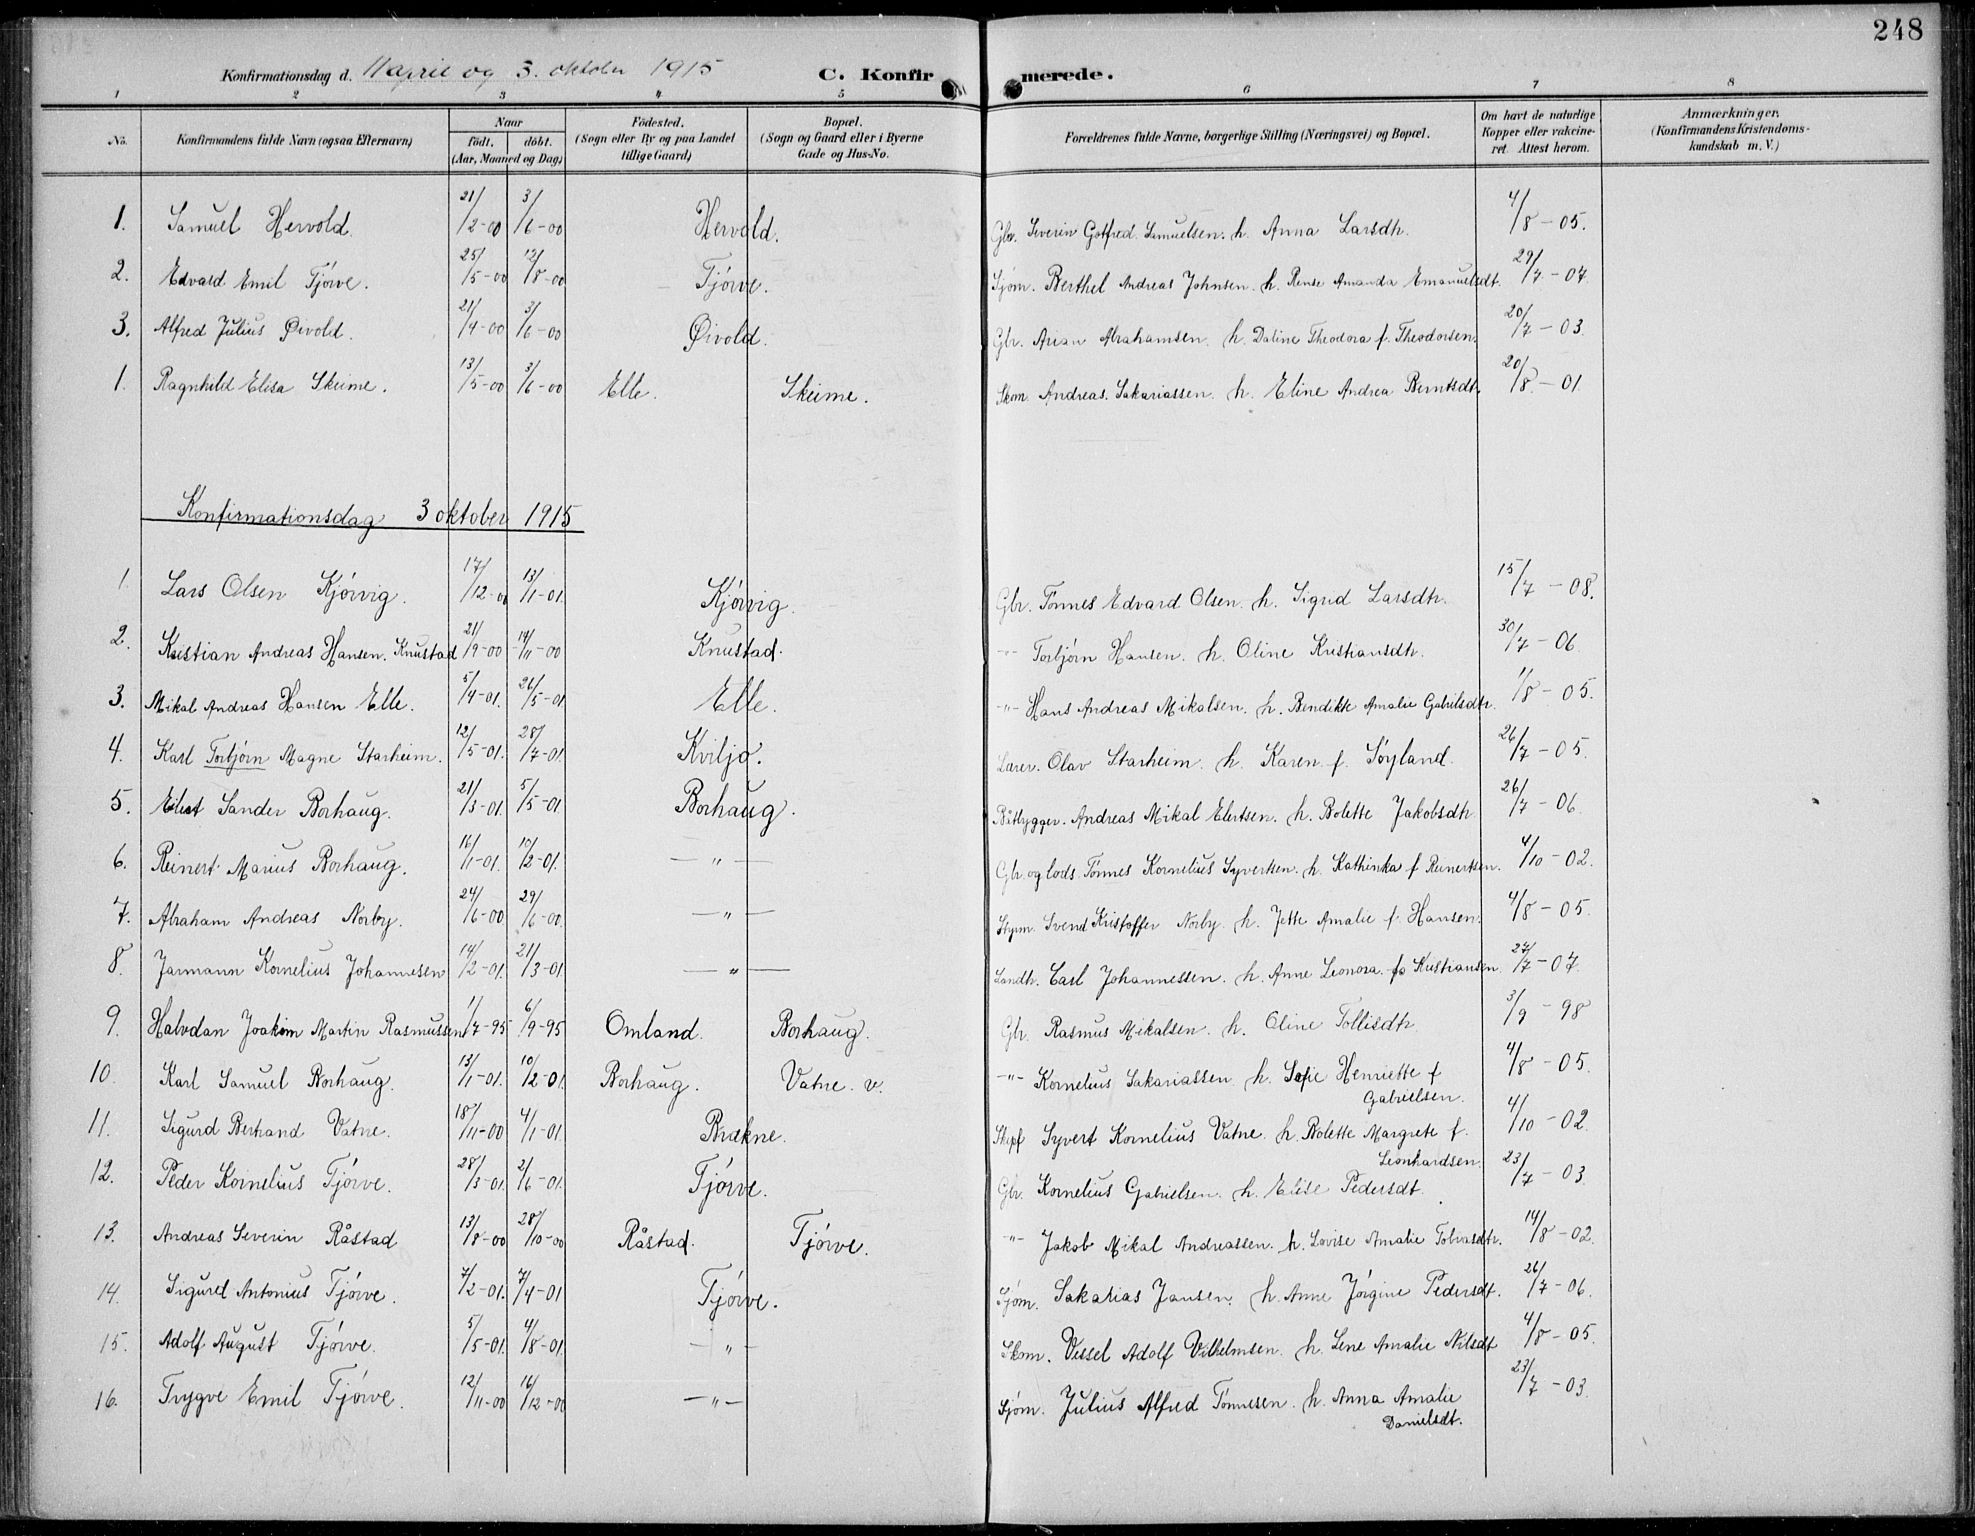 248
Konfirmationsdag d. 11 april og 3. oktober 1915 C. Konfirmerede.
1 2 3 4 5 6 7 8
No. Konfirmandens fulde Navn (ogsaa Efternavn) Naar født. døbt. (Aar, Maaned og Dag) Fødested. (Sogn eller By og paa Landet tillige Gaard) Bopæl. (Sogn og Gaard eller i Byerne Gade og Hus-No. Forældrenes fulde Navne, borgerlige Stilling (Næringsvei) og Bopæl. Om havt de naturlige Kopper eller vakcineret. Attest herom. Anmærkninger. (Konfirmandens Kristendomskundskab m. V.)
1. Samuel Hervold. 21/2-00 3/6-00 Hervold. Gbr. Severin Gotfred Samuelsen. h. Anna Larsdtr. 4/8-05.
2. Edvard Emil Tjörve. 25/5-00 12/8-00 Tjörve. Sjöm. Berthel Andreas Johnsen. h. Rense Amanda Emanuelsdt. 29/7-07.
3. Alfred Julius Øivold. 21/4-00 3/6-00 Øivold. Gbr. Arian Abrahamsen. h. Daline Theodora f. Theodorsen. 20/7-03.
1. Ragnhild Elisa Skeime. 13/5-00 3/6-00 Elle. Skeime. Skom. Andreas Sakariassen. h. Eline Andrea Berntsdt. 20/8-01
Konfirmationsdag 3 oktober 1915
1. Lars Olsen Kjörvig. 17/12-00 13/1-01. Kjörvig. Gbr. Tönnes Edvard Olsen. h. Sigrid Larsdtr. 15/7-08.
2. Kristian Andreas Hansen. Knustad 21/9-00 14/11-00 Knustad. -"- Torbjörn Hansen. h. Oline Kristiansdtr. 30/7-06.
3. Mikal Andreas Hansen Elle. 5/4-01. 26/5-01 Elle. -"- Hans Andreas Mikalsen. h. Bendikte Amalie Gabrielsdtr. 1/8-05.
4. Karl Torbjörn Magne Starheim. 12/5-01. 28/7-01. Kviljo. Lærer. Olav Starheim. h. Karen f. Söyland. 26/7-05.
5. Eilert Sander Borhaug. 21/3-01. 5/5-01 Borhaug. Båtbygger. Andreas Mikal Elertsen. h. Bolette Jakobsdtr 26/7-06.
6. Reinert Marius Borhaug. 16/1-01. 10/2-01. -"- Gbr og lods. Tönnes Kornelius Syvertsen. h. Kathinka f Reinertsen. 4/10-02.
7. Abraham Andreas Norby. 24/6-00 29/6-00. -"- Styrm. Svend Kristoffer Norby. h. Jette Amalie f. Hansen. 4/8-05.
8. Jarmann Kornelius Johannesen 14/2-01. 21/3-01. -"- Landh. Carl Johannessen. h. Anne Leonora. f. Kristiansen. 27/7-07.
9. Halvdan Joakim Martin Rasmussen 1/7-95 6/9-95 Omland. Borhaug. Gbr. Rasmus Mikalsen. h. Oline Tollisdtr. 3/9-98
10. Karl Samuel Borhaug. 13/1-01. 10/2-01. Borhaug. Vatne. v. -"- Kornelius Sakariassen. h. Sofie Henriette f Gabrielsen. 4/8-05.
11. Sigurd Bertrand Vatne. 18/11-00 4/1-01. Brækne. Skipf Syvert Kornelius Vatne. h. Bolette Margrete f. Leonhardsen. 4/10-02.
12. Peder Kornelius Tjörve. 28/3-01. 2/6-01. Tjörve. Gbr. Kornelius Gabrielsen. h. Elise Pedersdt. 23/7-03.
13. Andreas Severin Råstad 13/8-00 28/10-00 Råstad. Tjörve. -"- Jakob Mikal Andreassen. h. Lovise Amalie Tobiasdtr. 14/8-02.
14. Sigurd Antonius Tjörve. 7/2-01. 7/4-01 Tjörve. Sjöm. Sakarias Jansen. h. Anne Jörgine Pedersdt. 26/7-06.
15. Adolf August Tjörve. 5/5-01. 4/8-01. -"- Skom. Vessel Adolf Vilhelmsen. h. Lene Amalie Nilsdt 4/8-05.
16. Trygve Emil Tjörve. 12/11-00 16/12-00 -"- Sjöm. Julius Alfred Tönnesen. h. Anna Amalie Danielsdt. 23/7-03.